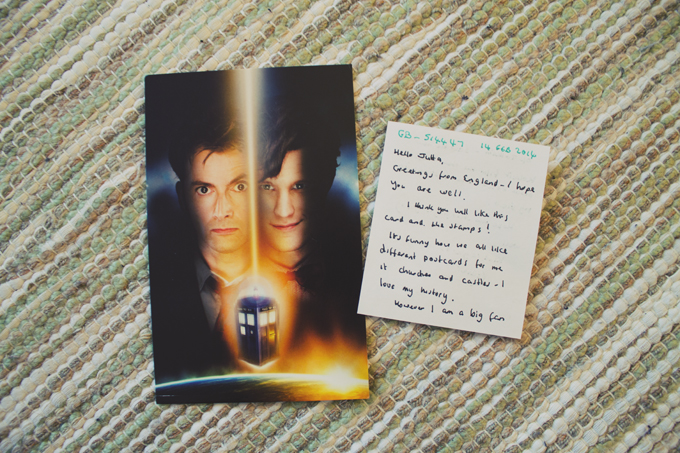 GB-514447 14 FEB 2014
Hello Jutta,
Greetings from England - I hope
you are well.
I think you will like this
card and the stamps!
Its funny how we all like
different postcards for me
it churches and castles - I
love my history.
However I am a big fan